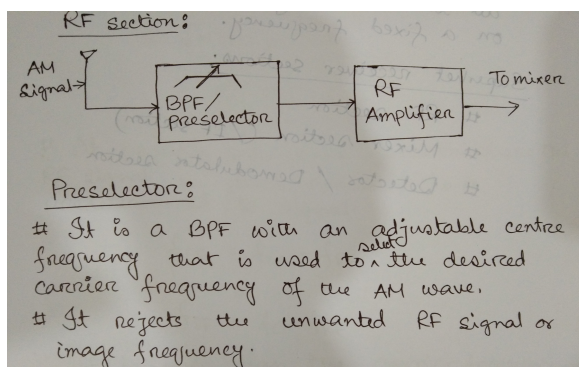 RF section:
AM
Signal
BPF/
Preselector
RF
Amplifier
To mixer
Preselector:
# It is a BPF with an adjustable centre
frequency that is used to select the desired
carrier frequency of the AM wave.
# It rejects the unwanted RF signal or
image frequency.